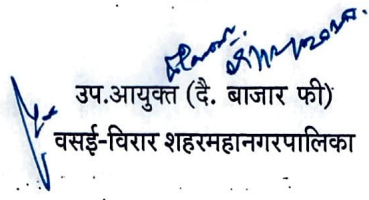 उप.आयुक्त (दै. बाजार फी)
वसई-विरार शहरमहानगरपालिका